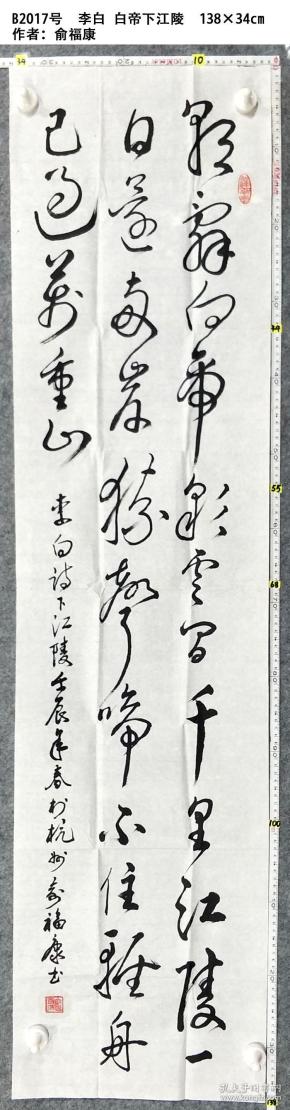 B2017号 李白 白帝下江陵 138×34cm
作者：俞福康
朝辞白帝彩云间千里江陵一
日还两岸猿声啼不住轻舟
已过万重山
李白诗下江陵壬辰年春于杭州俞福康书